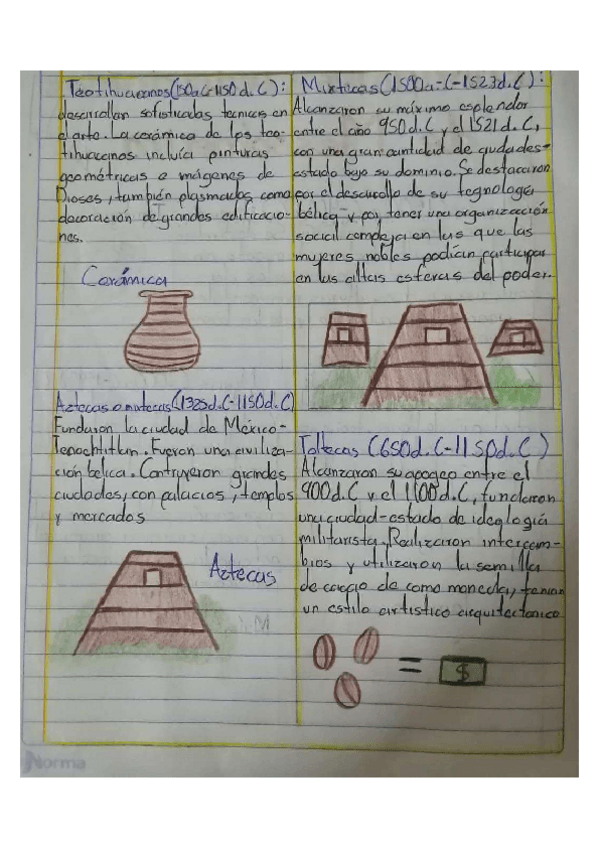 Teotihuacanos (150a.C-1150 d.C):
desarrollan sofisticadas tecnicas en
el arte. La cerámica de los teo-
tihuacanos incluía pinturas
geométricas e imágenes de
Dioses, también plasmados como
decoración de grandes edificacio-
nes.
Cerámica
Mixtecas (1500a.C-1523d.C):
Alcanzaron su máximo esplendor
entre el año 950d.C y el 1521 d.C,
con una gran cantidad de ciudades-
estado bajo su dominio. Se destacaron
por el desarrollo de su tegnología
bélica y por tener una organización
social compleja en las que las
mujeres nobles podían participar
en las altas esferas del poder.
Aztecas o mixtecas (1325d.C-1150d.C)
Fundaron la ciudad de México-
Tenochtitlan. Fueron una civiliza-
ción bélica. Contruyeron grandes
ciudades, con palacios, templos
y mercados
Aztecas
Toltecas (650d.C-1150d.C)
Alcanzaron su apogeo entre el
900d.C y el 1100d.C, fundaron
una ciudad-estado de ideología
militarista. Realizaron intercam-
bios y utilizaron la semilla
de cacao de como moneda, tenian
un estilo artistico arquitectonico
= $
Norma